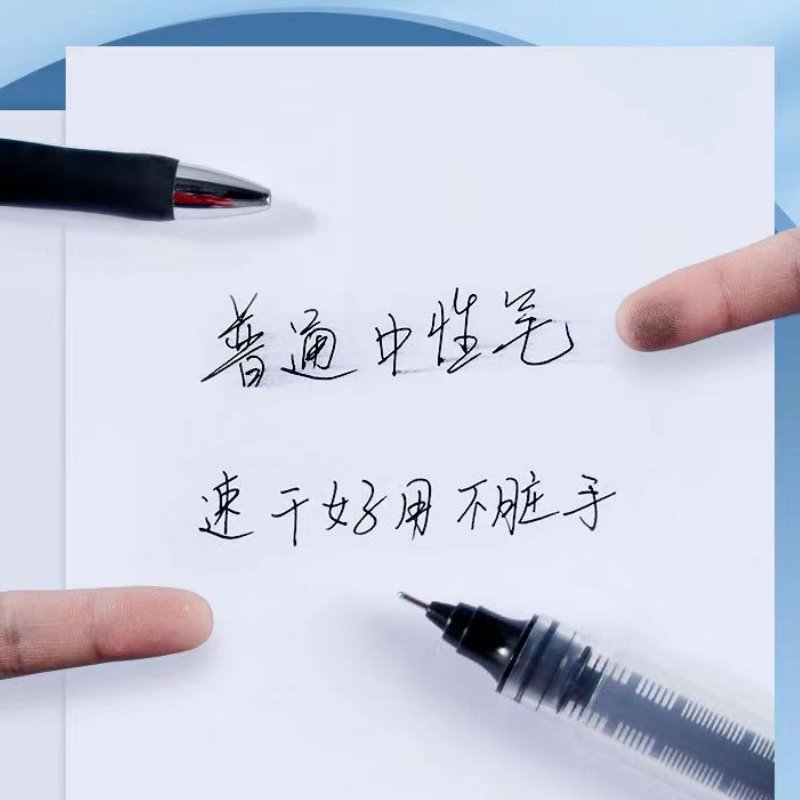 普通中性笔
速干好用不脏手